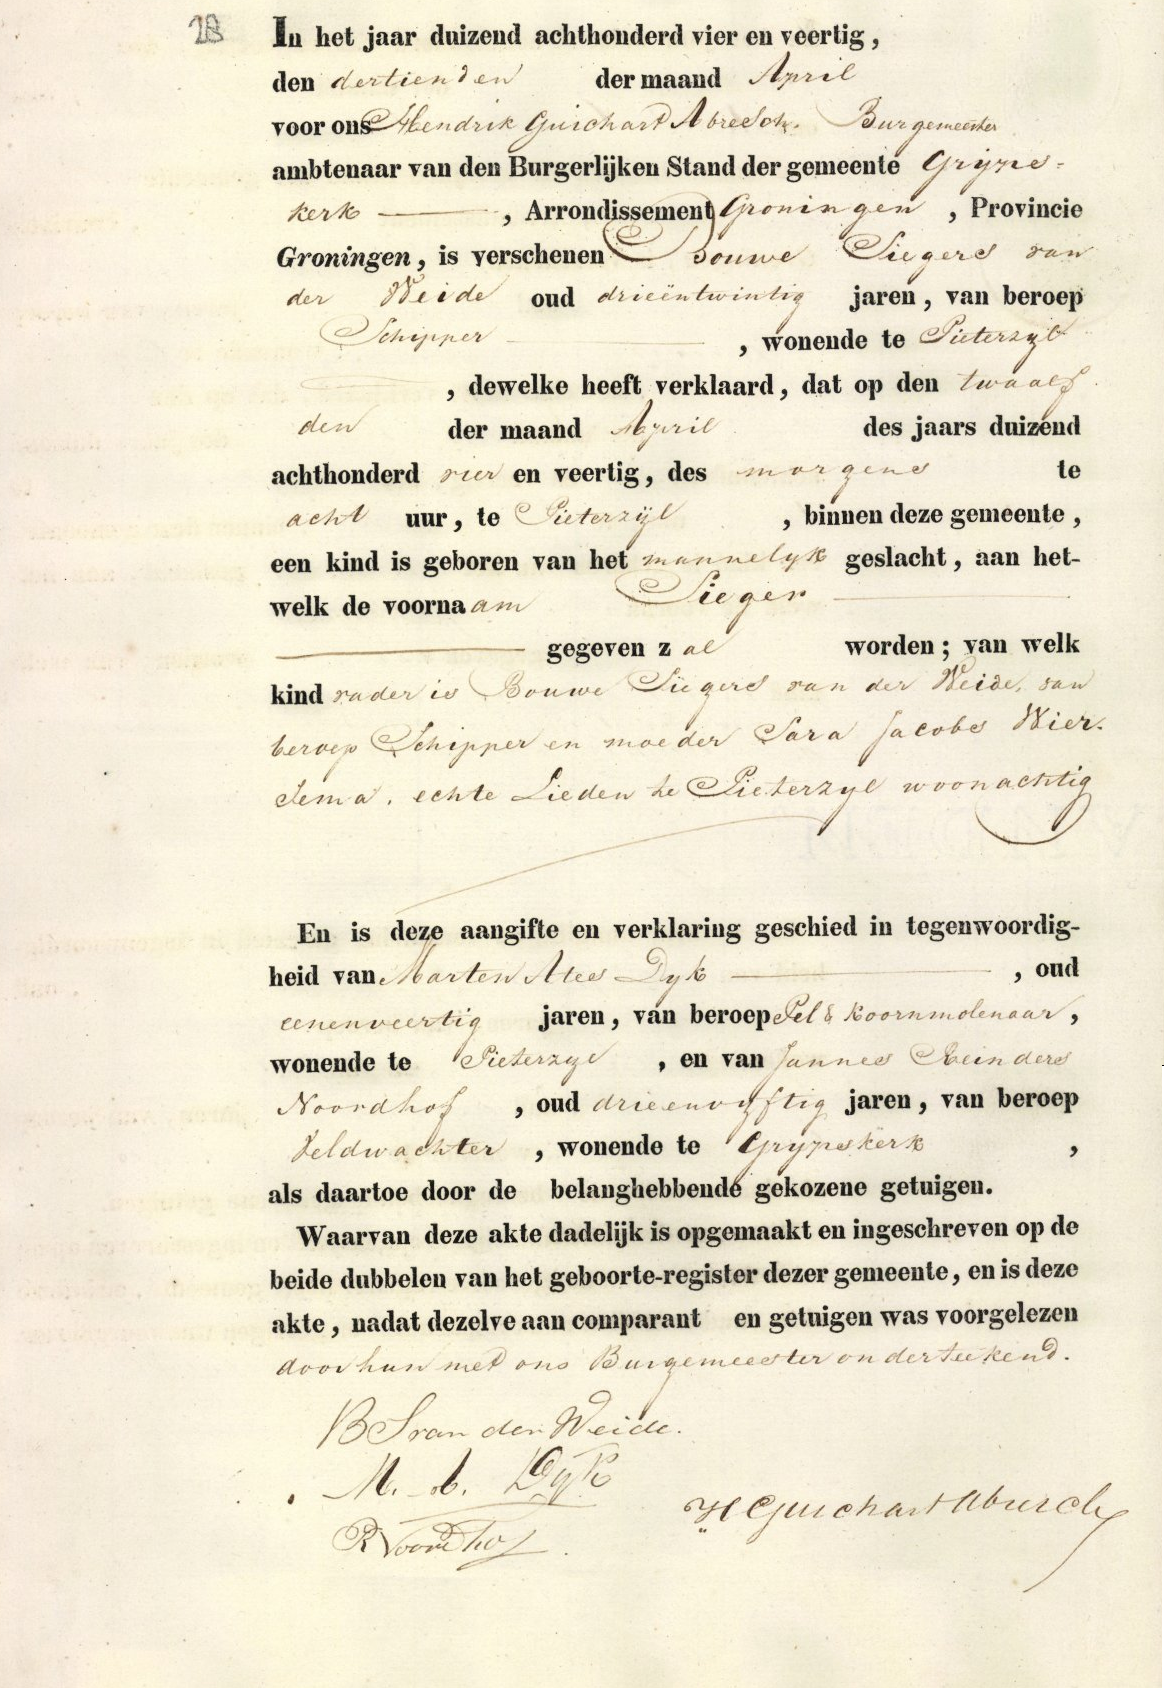 28 In het jaar duizend achthonderd vier en veertig,
den dertienden der maand April
voor ons Hendrik Guichart Abresch. Burgemeester
ambtenaar van den Burgerlijken Stand der gemeente Grijps-
kerk , Arrondissement Groningen , Provincie
Groningen, is verschenen Bouwe Siegers van
der Weide oud drieëntwintig jaren, van beroep
Schipper , wonende te Pieterzijl
, dewelke heeft verklaard, dat op den twaalf
den der maand April des jaars duizend
achthonderd vier en veertig, des morgens te
acht uur, te Pieterzijl , binnen deze gemeente,
een kind is geboren van het mannelyk geslacht, aan het-
welk de voornaam Sieger
gegeven zal worden; van welk
kind vader is Bouwe Siegers van der Weide, van
beroep Schipper en moeder Sara Jacobs Wier-
sema, echte Lieden te Pieterzyl woonachtig
En is deze aangifte en verklaring geschied in tegenwoordig-
heid van Marten Ates Dyk , oud
eenenveertig jaren, van beroep Pel & Koornmolenaar,
wonende te Pieterzyl , en van Jannes Reinders
Noordhof , oud drieenvyftig jaren, van beroep
Veldwachter , wonende te Grypskerk ,
als daartoe door de belanghebbende gekozene getuigen.
Waarvan deze akte dadelijk is opgemaakt en ingeschreven op de
beide dubbelen van het geboorte-register dezer gemeente, en is deze
akte, nadat dezelve aan comparant en getuigen was voorgelezen
door hun met ons Burgemeester onderteekend.
B S van der Weide.
M. A. Dyk
R Noordhof
H Guichart Abresch